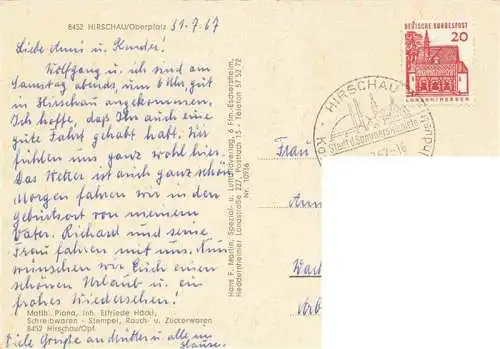 8452 HIRSCHAU/Oberpfalz
31.7.67
Liebe Anni u. Kinder!
Wolfgang u. ich sind am
Samstag abends, um 6 Uhr, gut
in Hirschau angekommen.
Ich hoffe, daß Ihr auch eine
gute Fahrt gehabt habt. Wir
fühlen uns ganz wohl hier.
Das Wetter ist auch ganz schön
Morgen fahren wir in den
Geburtsort von meinem
Vater. Richard und seine
Frau fahren mit uns. Nun
wünschen wir Euch einen
schönen Urlaub u. ein
frohes Wiedersehen!
Matth. Piona, Inh. Elfriede Häckl,
Schreibwaren - Stempel, Rauch- u. Zuckerwaren
8452 Hirschau/Opf.
Viele Grüße an Mutter u. alle im
Hause.
Hans F. Martin, Spezial- u. Luftbildverlag, 6 Ffm.-Eschersheim,
Heddernheimer Landstraße 227, Postfach 15 - Telefon 57 52 72
Nr. 10936
DEUTSCHE BUNDESPOST
20
LORSCH/HESSEN
HIRSCHAU
Stadt d
67-16
Frau